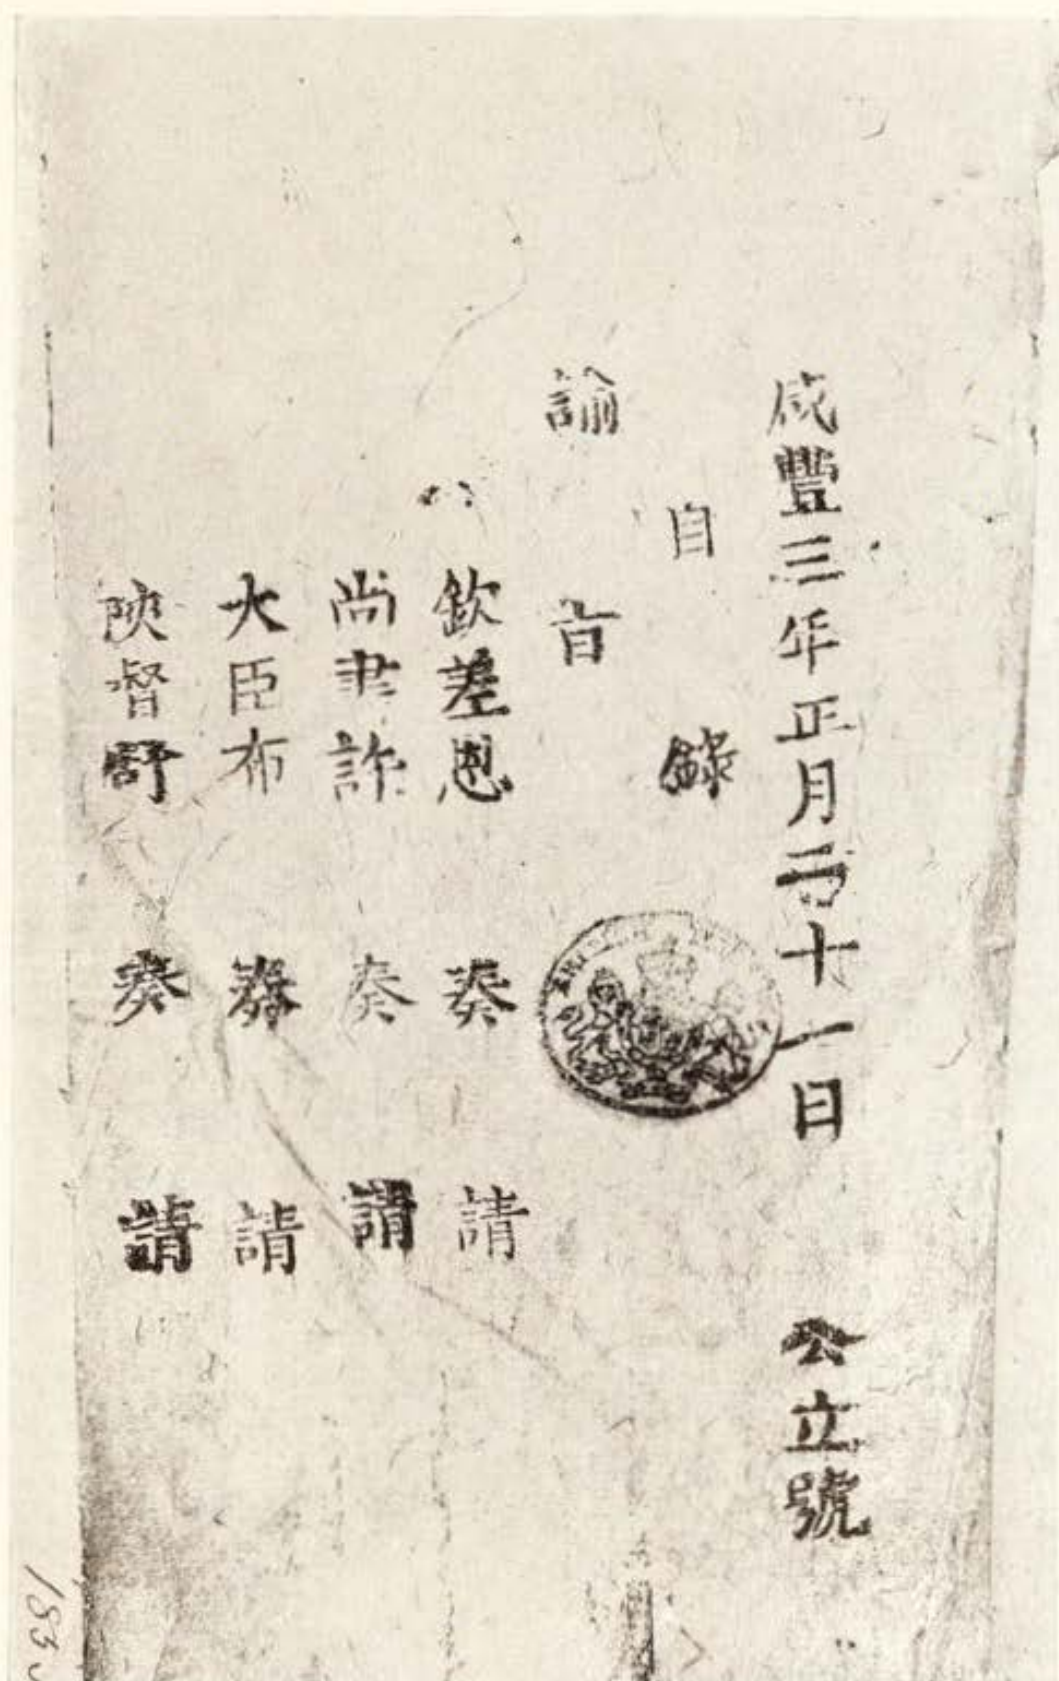 咸豐三年正月二十一日 公立號
自錄
諭旨
欽差恩 奏請
尚書許 奏請
大臣布 奏請
陝督舒 奏請